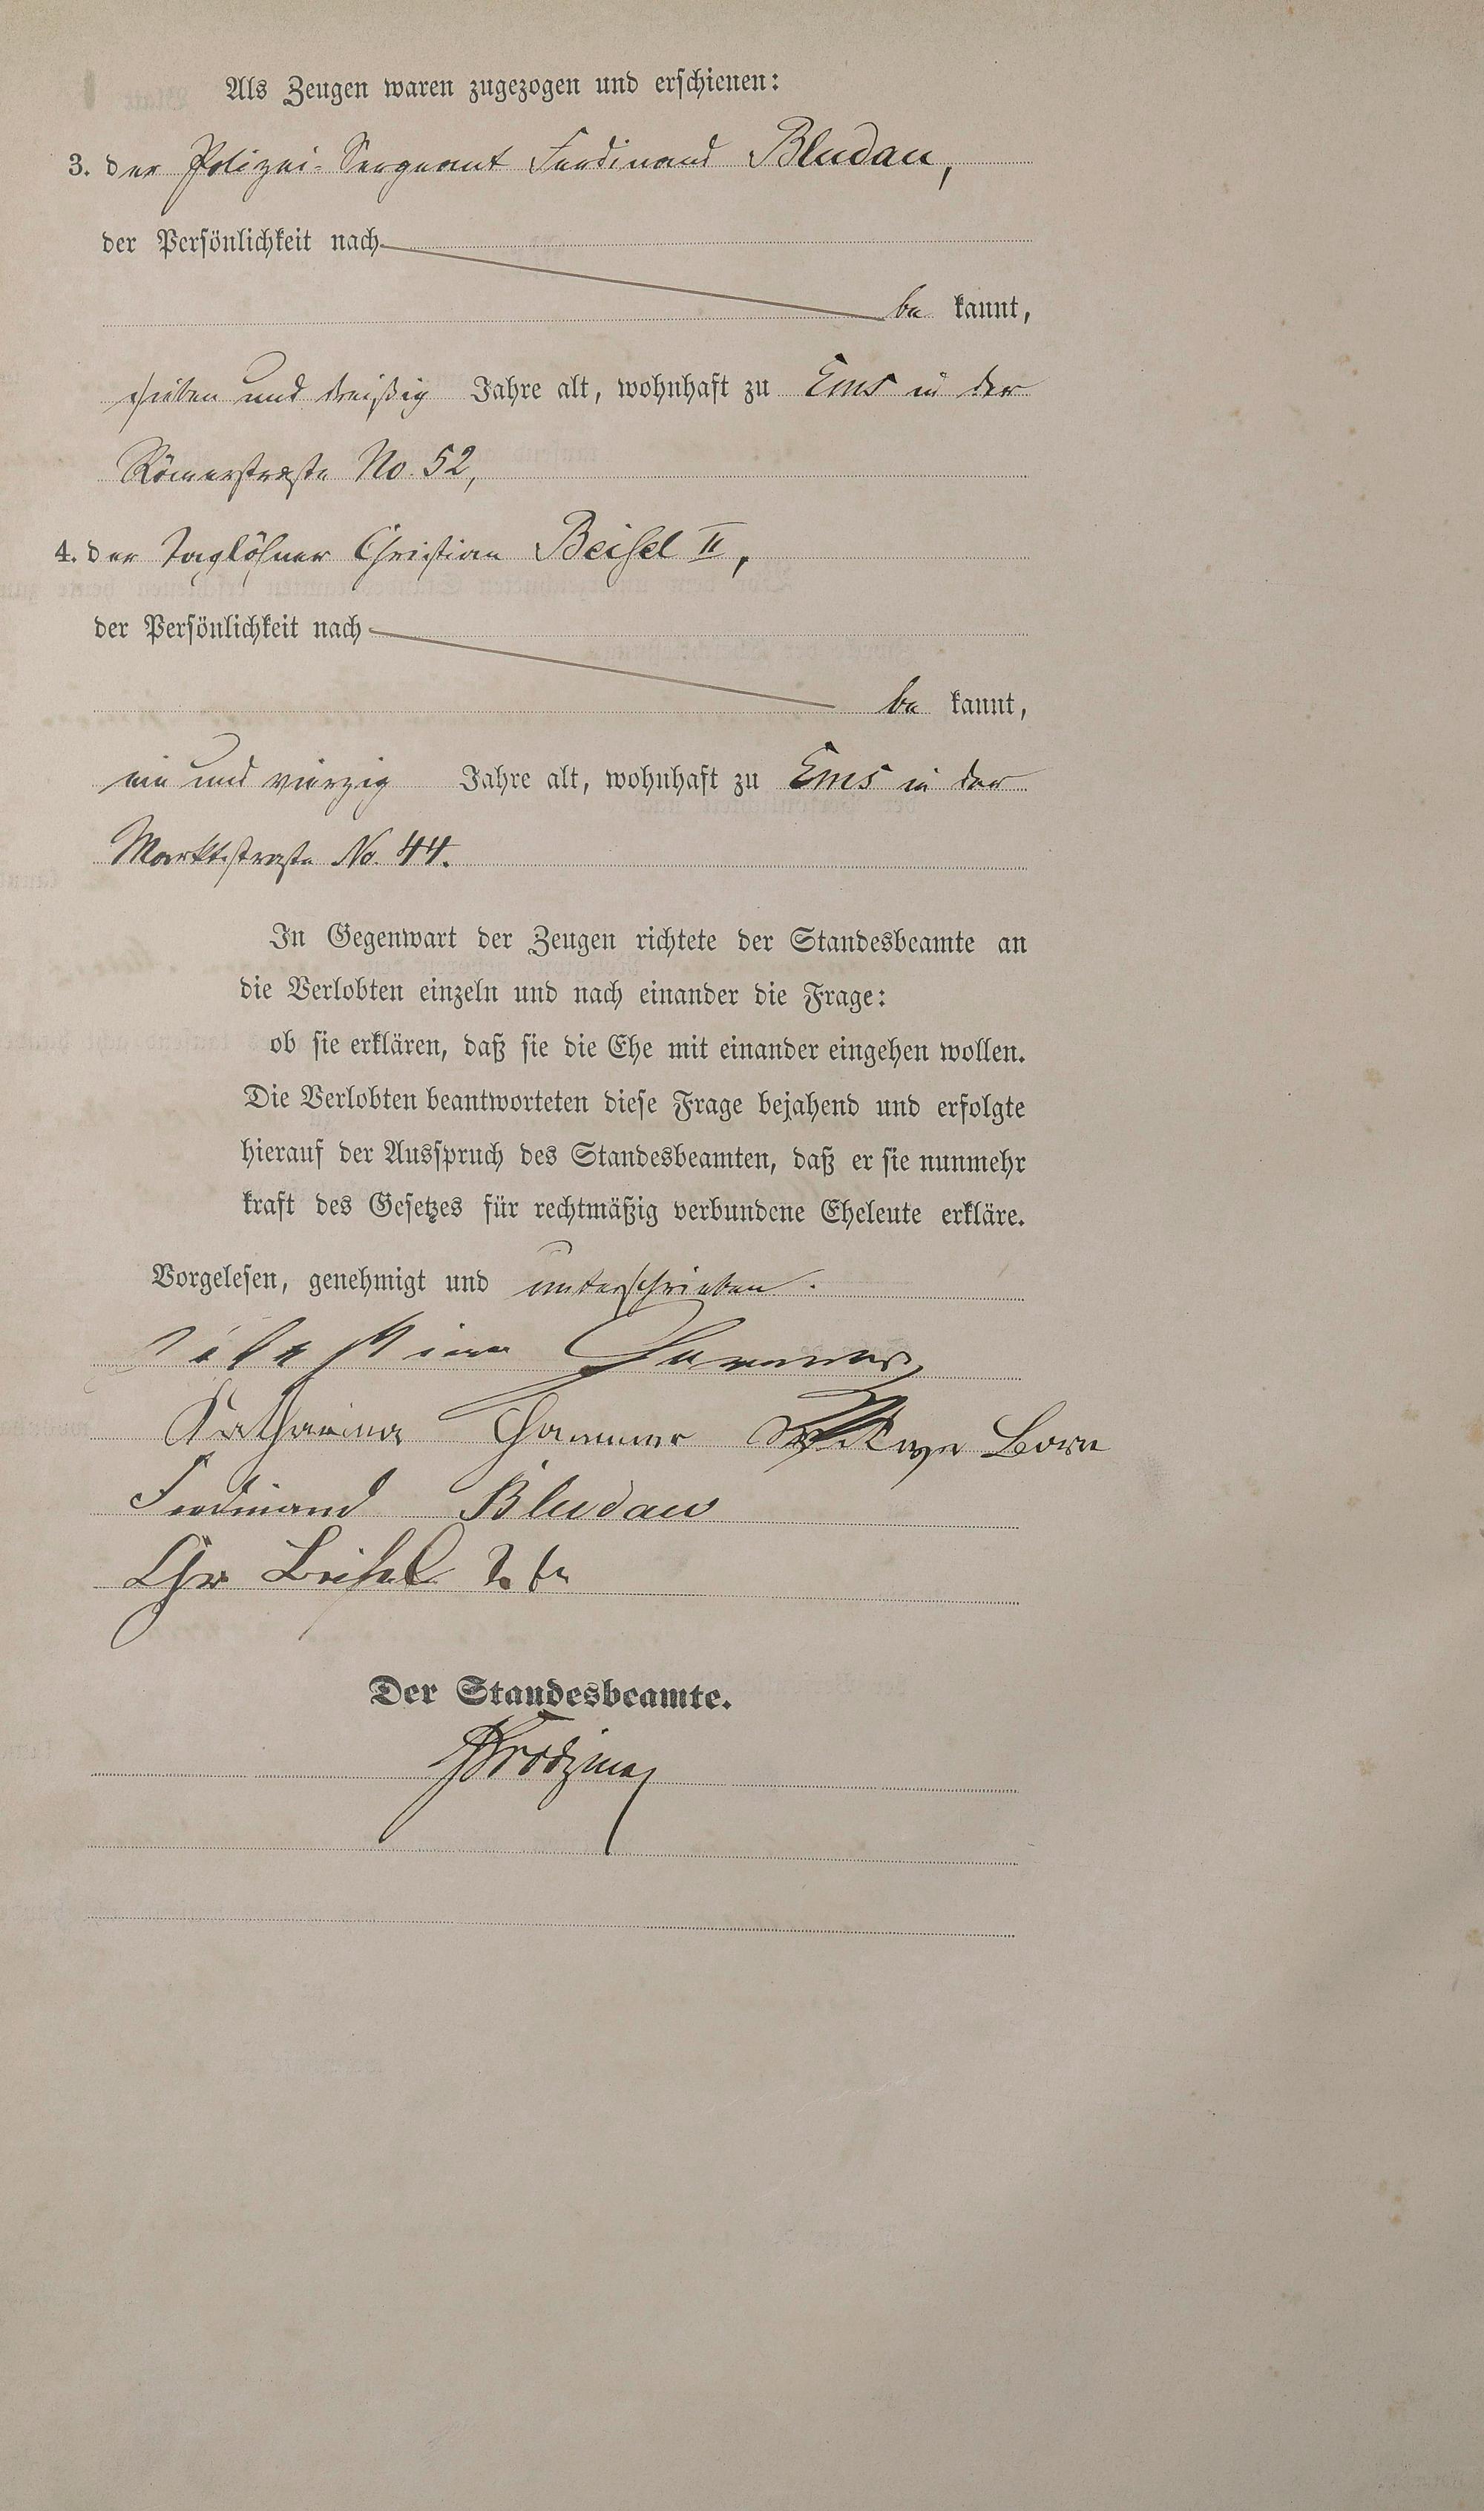 Als Zeugen waren zugezogen und erschienen:
3. der Polizei-Sergeant Ferdinand Bludau,
der Persönlichkeit nach
be kannt,
sieben und dreißig Jahre alt, wohnhaft zu Ems in der
Römerstraße No. 52,
4. der Taglöhner Christian Beisel II,
der Persönlichkeit nach
be kannt,
ein und vierzig Jahre alt, wohnhaft zu Ems in der
Marktstraße No. 44.
In Gegenwart der Zeugen richtete der Standesbeamte an
die Verlobten einzeln und nach einander die Frage:
ob sie erklären, daß sie die Ehe mit einander eingehen wollen.
Die Verlobten beantworteten diese Frage bejahend und erfolgte
hierauf der Ausspruch des Standesbeamten, daß er sie nunmehr
kraft des Gesetzes für rechtmäßig verbundene Eheleute erkläre.
Vorgelesen, genehmigt und unterschrieben.
Katharina Born
Ferdinand Bludau
Chr Beisel
Der Standesbeamte.